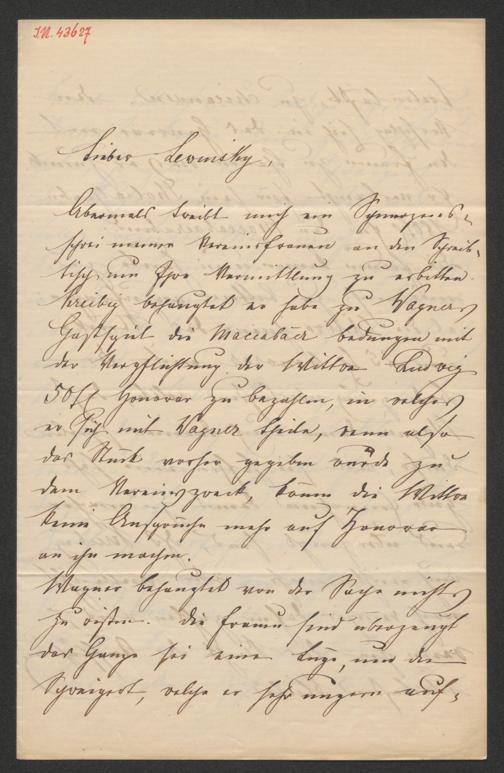 I.N. 43627
Lieber Lewinsky,
Abermals treibt mich ein Schmerzens-
schrei meiner Vereinsfrauen an den Schreib-
tisch, um Ihre Vermittlung zu erbitten.
Kreibig behauptet er habe zu Wagners
Gastspiel die Maccabäer bedungen mit
der Verpflichtung der Wittwe Ludwig
50 fl Honorar zu bezahlen, in welches
er sich mit Wagner theile, wenn also
das Stück vorher gegeben würde zu
dem Vereinszweck, könne die Wittwe
keine Ansprüche mehr auf Honorar
an ihn machen.
Wagner behauptet von der Sache nichts
zu wissen. Die Frauen sind überzeugt
das Ganze sei eine Lüge, um die
Schweigert, welche er sehr ungern auf-